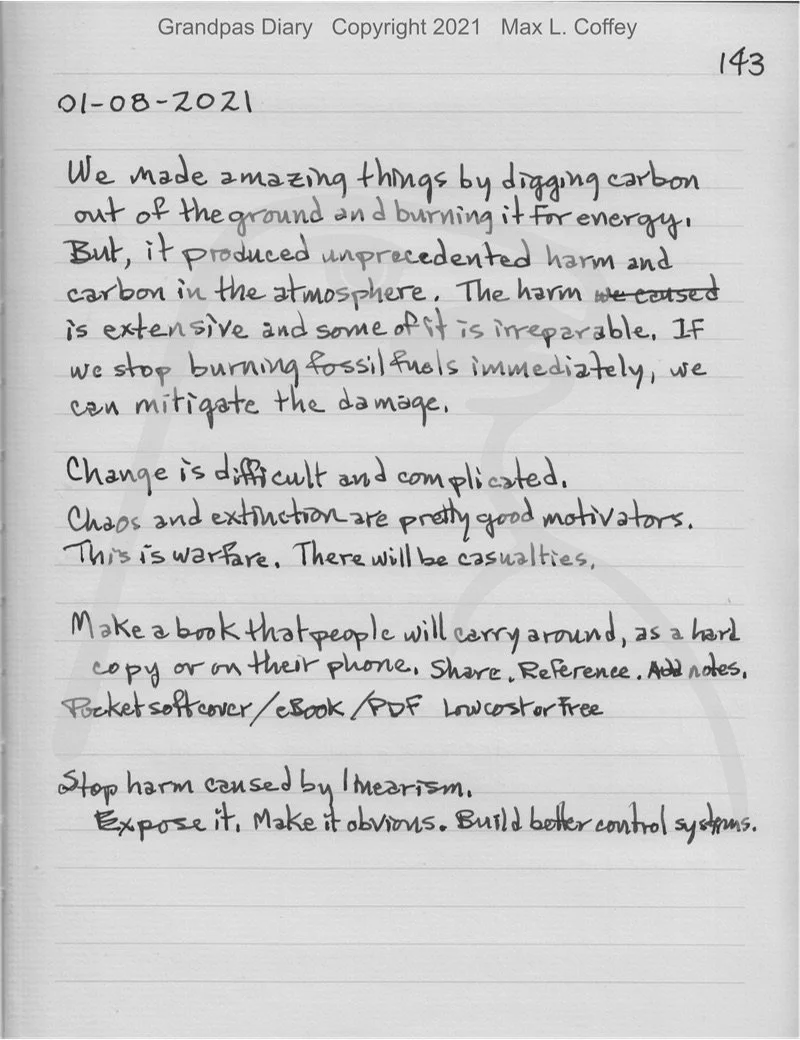 Grandpas Diary Copyright 2021 Max L. Coffey
143
01-08-2021
We made amazing things by digging carbon
out of the ground and burning it for energy.
But, it produced unprecedented harm and
carbon in the atmosphere. The harm we caused
is extensive and some of it is irreparable. If
we stop burning fossil fuels immediately, we
can mitigate the damage.
Change is difficult and complicated.
Chaos and extinction are pretty good motivators.
This is warfare. There will be casualties.
Make a book that people will carry around, as a hard
copy or on their phone. Share. Reference. Add notes.
Pocket softcover/eBook/PDF Low cost or Free
Stop harm caused by linearism.
Expose it. Make it obvious. Build better control systems.